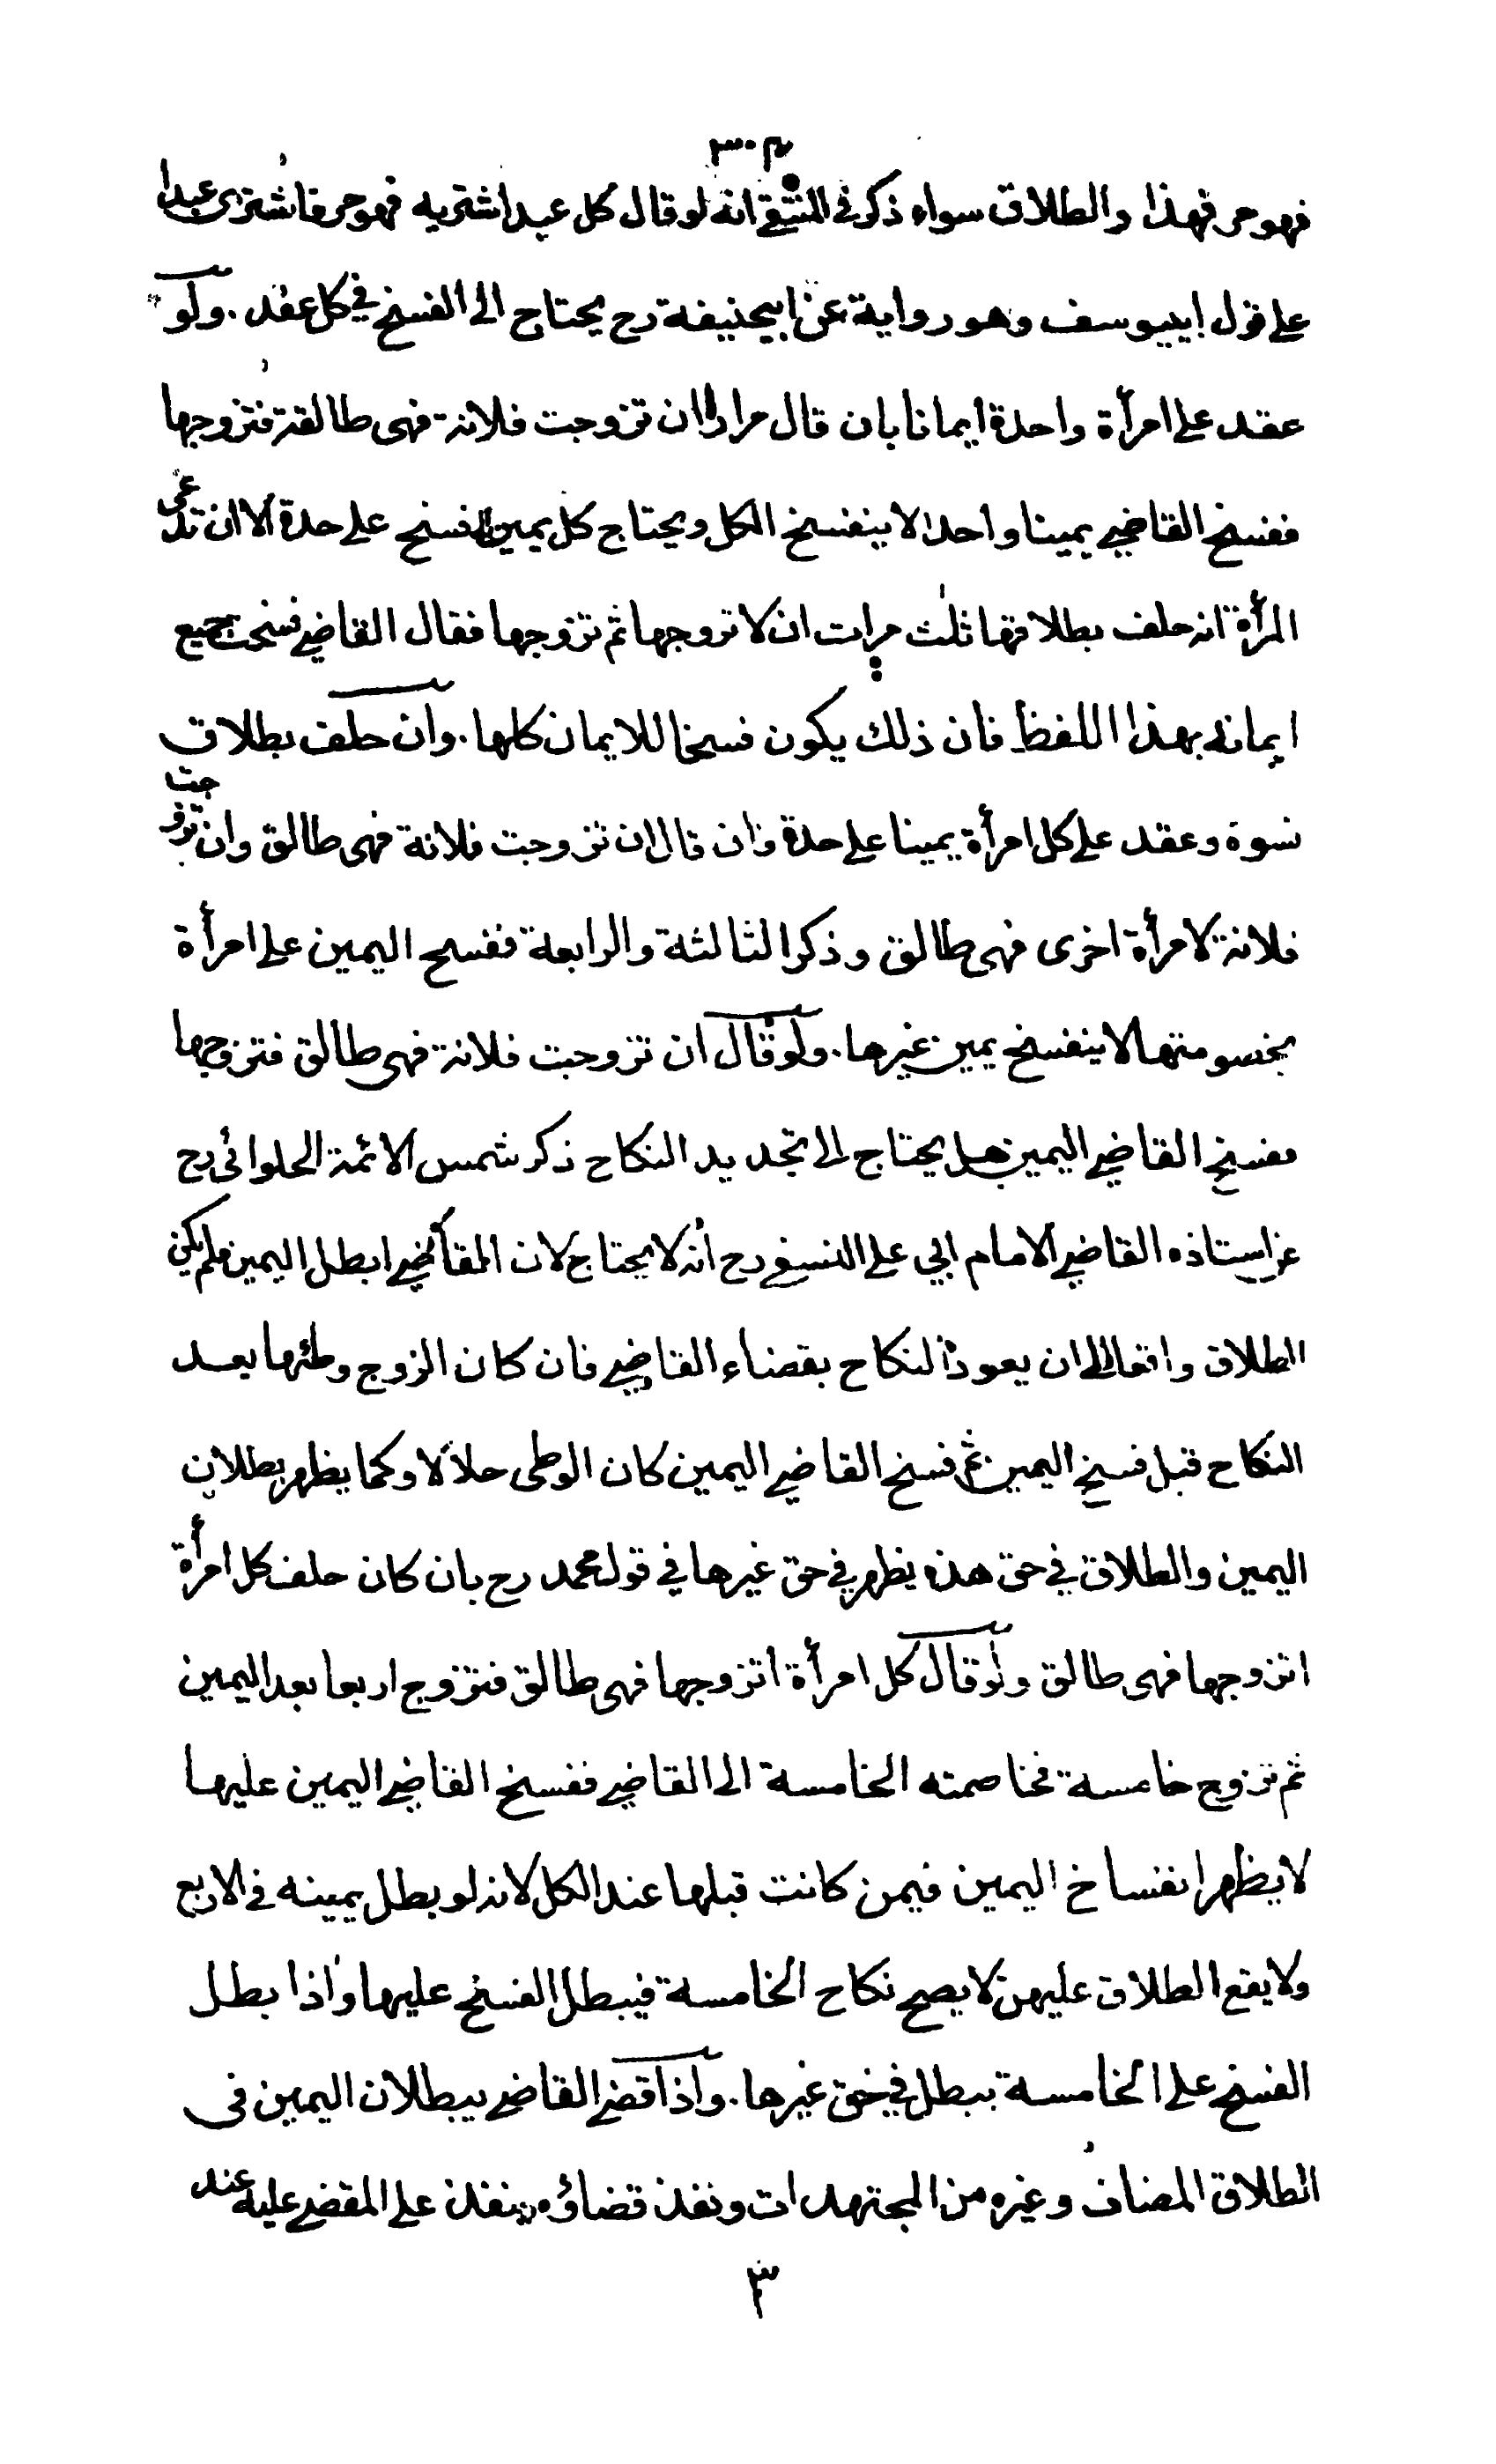 ٣٠٣
فهو حر فهذا والطلاق سواء ذكر في المنتقى انه لو قال كل عبد اشتريه فهو حر فاشترى عبدا
على قول ابييوسف وهو رواية عن ابيحنيفة رح يحتاج الى الفسخ في كل عقد . ولو
عقد على امرأة واحدة ايمانا بان قال مرارا ان تزوجت فلانة فهى طالقة فتزوجها
ففسخ القاضي يمينا واحدا لا ينفسخ الكل ويحتاج كل يمين الى فسخ على حدة الا ان تدعى
المرأة انه حلف بطلاقها ثلث مرات ان لا تزوجها ثم تزوجها فقال القاضي فسخت جميع
ايمانه بهذا اللفظ فان ذلك يكون فسخا للايمان كلها . وان حلف بطلاق
نسوة وعقد على كل امرأة يمينا على حدة وان قال ان تزوجت فلانة فهى طالق وان تزوجت
فلانة لامرأة اخرى فهى طالق وذكر الثالثة والرابعة ففسخ اليمين على امرأة
بخصومتها لا ينفسخ يمين غيرها . ولو قال ان تزوجت فلانة فهى طالق فتزوجها
ففسخ القاضي اليمين هل يحتاج الى تجديد النكاح ذكر شمس الائمة الحلوائى رح
عن استاذه القاضي الامام ابي على النسفي رح انه لا يحتاج لان القاضي ابطل اليمين فلم يكن
الطلاق واقعا الى ان يعود النكاح بقضاء القاضي فان كان الزوج وطئها بعد
النكاح قبل فسخ اليمين ثم فسخ القاضي اليمين كان الوطى حلالا وكما يظهر بطلان
اليمين والطلاق في حق هذه يظهر في حق غيرها في قول محمد رح بان كان حلف كل امرأة
اتزوجها فهى طالق ولو قال كل امرأة اتزوجها فهى طالق فتزوج اربعا بعد اليمين
ثم تزوج خامسة فخاصمته الخامسة الى القاضي ففسخ القاضي اليمين عليها
لا يظهر انفساخ اليمين فيمن كانت قبلها عند الكل لانه لو بطل يمينه في الاربع
ولا يقع الطلاق عليهن لا يصح نكاح الخامسة فيبطل الفسخ عليها واذا بطل
الفسخ على الخامسة يبطل في حق غيرها . واذا قضى القاضي ببطلان اليمين فى
الطلاق المضاف وغيره من المجتهدات ونفذ قضاؤه ينفذ على المقضى عليه عند
٣